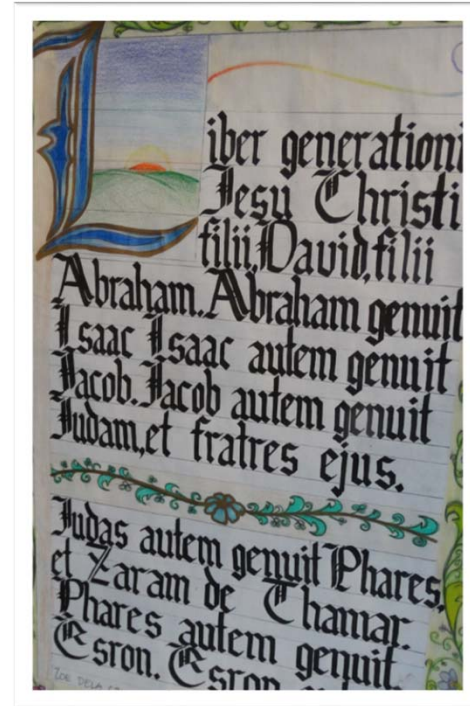 Liber generationi
Jesu Christi
filii, David, filii
Abraham. Abraham genuit
Isaac Isaac autem genuit
Jacob. Jacob autem genuit
Judam, et fratres ejus.
Judas autem genuit Phares,
et Zaram de Thamar.
Phares autem genuit
Esron. Esron
ZOE DELA